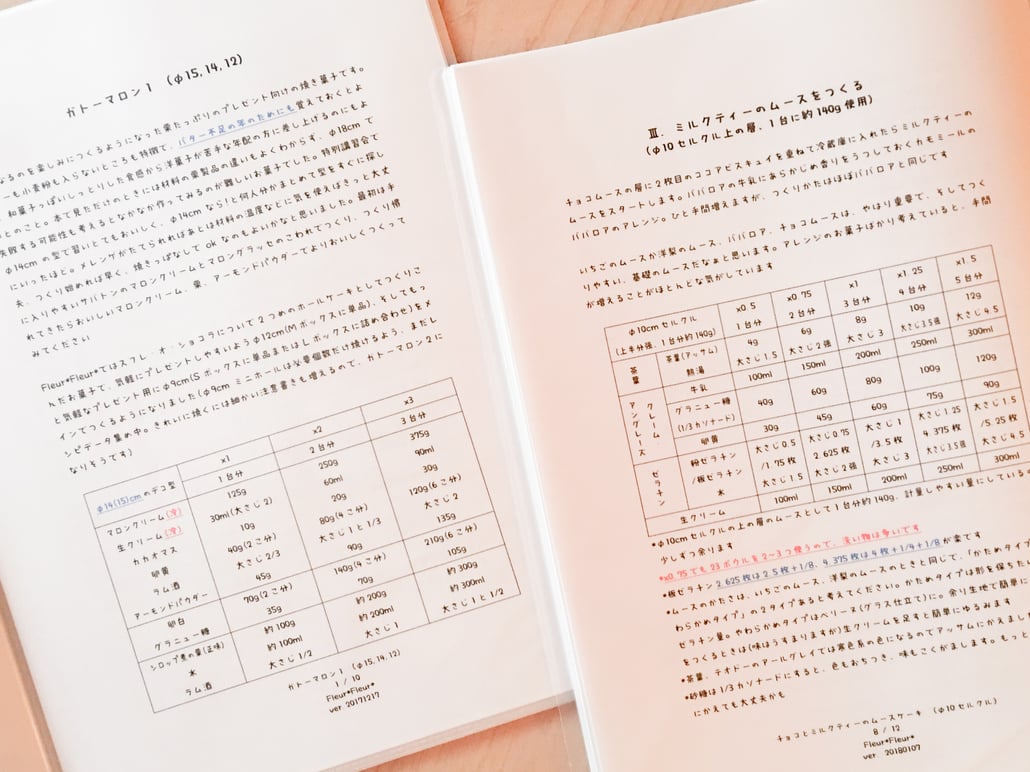 ガトーマロン1 (φ15,14,12)
なるのを楽しみにつくるようになった栗たっぷりのプレゼント向けの焼き菓子です。
ーも小麦粉も入らないところも特徴で、バター不足の年のためにも覚えておくとよ
和菓子っぽいしっとりした食感から洋菓子が苦手な年配の方に差し上げるのにもよ
とのこと。本で見ただけのときには材料の栗製品の違いもよくわからず、φ18cmで
失敗する可能性も考えるとなかなか作ってみるのが難しいお菓子でした。特別講習会で
φ14cmの型で習いとてもおいしく、φ14cmなら1と何人分かまとめて型をすぐに探し
にいったほど。メレンゲがたてられればあとは材料の温度などに気を使はきっと大丈
夫、つくり始めれば早く、焼きっぱなしでokなのもよいかなと思いました。最初は手
に入りやすいサバトンのマロンクリームとマロングラッセのこわれてつくり、つくり慣
れてきたらおいしいマロンクリーム、栗、アーモンドパウダーでよりおいしくつくって
みてください
Fleur*Fleur*ではスフレ・オ・ショコラについで2つめのホールケーキとしてつくりこ
んだお菓子で、気軽にプレゼントしやすいようφ12cm(Mボックスに単品)、そしてもっ
と気軽なプレゼント用にφ9cm(Sボックスに単品またはLボックスに詰め合わせ)をメ
インでつくるようになりました(φ9cmミニホールは必要個数だけ焼けるよう、まだレ
シピデータ集め中。きれいに焼くには細かい注意書きも増えるので、ガトーマロン2に
なりそうです)
φ14(15)cmのデコ型 x1 1台分 x2 2台分 x3 3台分
マロンクリーム(冷) 125g 250g 375g
生クリーム(冷) 30ml(大さじ2) 60ml 90ml
カカオマス 10g 20g 30g
卵黄 40g(2こ分) 80g(4こ分) 120g(6こ分)
ラム酒 大さじ2/3 大さじ1と1/3 大さじ2
アーモンドパウダー 45g 90g 135g
卵白 70g(2こ分) 140g(4こ分) 210g(6こ分)
グラニュー糖 35g 70g 105g
シロップ煮の栗(正味) 約100g 約200g 約300g
水 約100ml 約200ml 約300ml
ラム酒 大さじ1/2 大さじ1 大さじ1と1/2
ガトーマロン1 (φ15,14,12)
1 / 10
Fleur*Fleur*
ver. 20171217
Ⅲ. ミルクティーのムースをつくる
(φ10セルクル上の層、1台に約140g使用)
チョコムースの層に2枚目のココアビスキュイを重ねて冷蔵庫に入れたらミルクティーの
ムースをスタートします。ババロアの牛乳にあらかじめ香りをうつしておくカモミールの
ババロアのアレンジ。ひと手間増えますが、つくりかたはほぼババロアと同じです
いちごのムースか洋梨のムース、ババロア、チョコムースは、やはり重要で、そしてつく
りやすい、基礎のムースだなぁと思います。アレンジのお菓子ばかり考えていると、手間
が増えることがほとんどな気がしています
φ10cmセルクル (上半分強、1台分約140g) x0.5 1台分 x0.75 2台分 x1 3台分 x1.25 4台分 x1.5 5台分
茶葉 茶葉(アッサム) 4g 大さじ1.5 6g 大さじ2強 8g 大さじ3 10g 大さじ3.5強 12g 大さじ4.5
熱湯 100ml 150ml 200ml 250ml 300ml
アングレーズ クレーム 牛乳
グラニュー糖 (1/3カソナード) 40g 60g 80g 100g 120g
卵黄 30g 45g 60g 75g 90g
ゼラチン 粉ゼラチン /板ゼラチン 大さじ0.5 /1.75枚 大さじ0.75 2.625枚 大さじ1 /3.5枚 大さじ1.25 4.375枚 大さじ1.5 /5.25枚
水 大さじ1.5 大さじ2強 大さじ3 大さじ3.5強 大さじ4.5
生クリーム 100ml 150ml 200ml 250ml 300ml
*φ10cmセルクルの上の層のムースとして1台分約140g、計量しやすい量にしているの
少しずつ余ります
*x0.75でも23ボウルを2~3つ使うので、洗い物は多いです
*板ゼラチン2.625枚は2.5枚+1/8、4.375枚は4枚+1/4+1/8が楽です
*ムースのかたさは、いちごのムース、洋梨のムースのときと同じで、「かためタイプ
わらかめタイプ」の2タイプあると考えてください。かためタイプは形を保ちたい
ゼラチン量。やわらかめタイプはベリーヌ(グラス仕立て)に。余り生地で簡単に
をつくるときは(味はうすまりますが)生クリームを足すと簡単にゆるみます
*茶葉、テオドーのアールグレイでは寒色系の色になるのでアッサムにかえました
*砂糖は1/3カソナードにすると、色もおちつき、味もこくがまします。もっと
にかえても大丈夫かも
チョコとミルクティーのムースケーキ (φ10セルクル)
8 / 12
Fleur*Fleur*
ver. 20180107